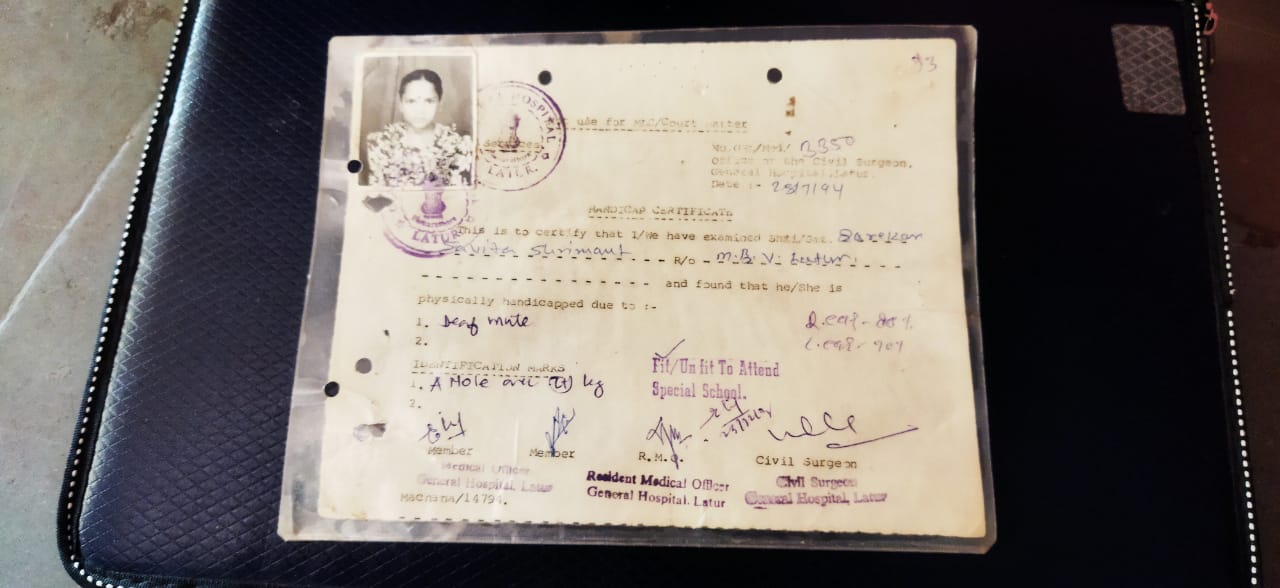 93
use for MLC/Court matter
HOSPITAL
LATUR.
Services
Office of the Civil Surgeon,
General Hospital, Latur.
Date :- 25/7/94
HANDICAP CERTIFICATE
This is to certify that I/We have examined Shri/Smt.
Savita Shrimant R/o - M.B.V. Latur.
LATUR
and found that he/She is
physically handicapped due to :-
1. Deaf mute
2.
R.ear - 80%
L.ear - 90%
IDENTIFICATION MARKS
1. A Mole over
2.
Fit/Unfit To Attend
Special School.
Member
Member
R.M.O.
Civil Surgeon
Medical Officer
General Hospital, Latur
Resident Medical Officer
General Hospital, Latur
Civil Surgeon
General Hospital, Latur
Machana/14794.